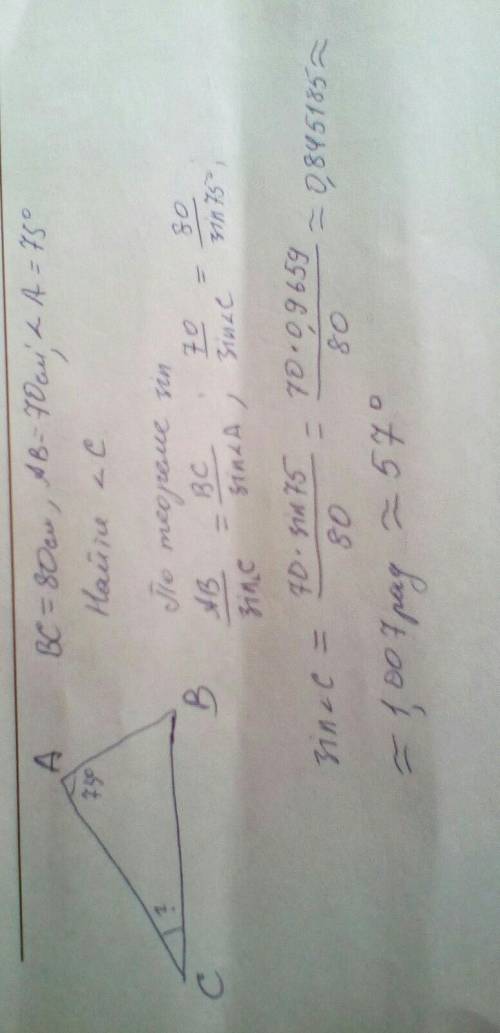 BC = 80см, AB = 70см, ∠A = 75°
Найти ∠C
A
75°
?
C
B
По теореме sin
AB/sin∠C = BC/sin∠A; 70/sin∠C = 80/sin75°;
sin∠C = 70·sin75/80 = 70·0,9659/80 ≈ 0,845185 ≈
≈ 1,007 рад ≈ 57°